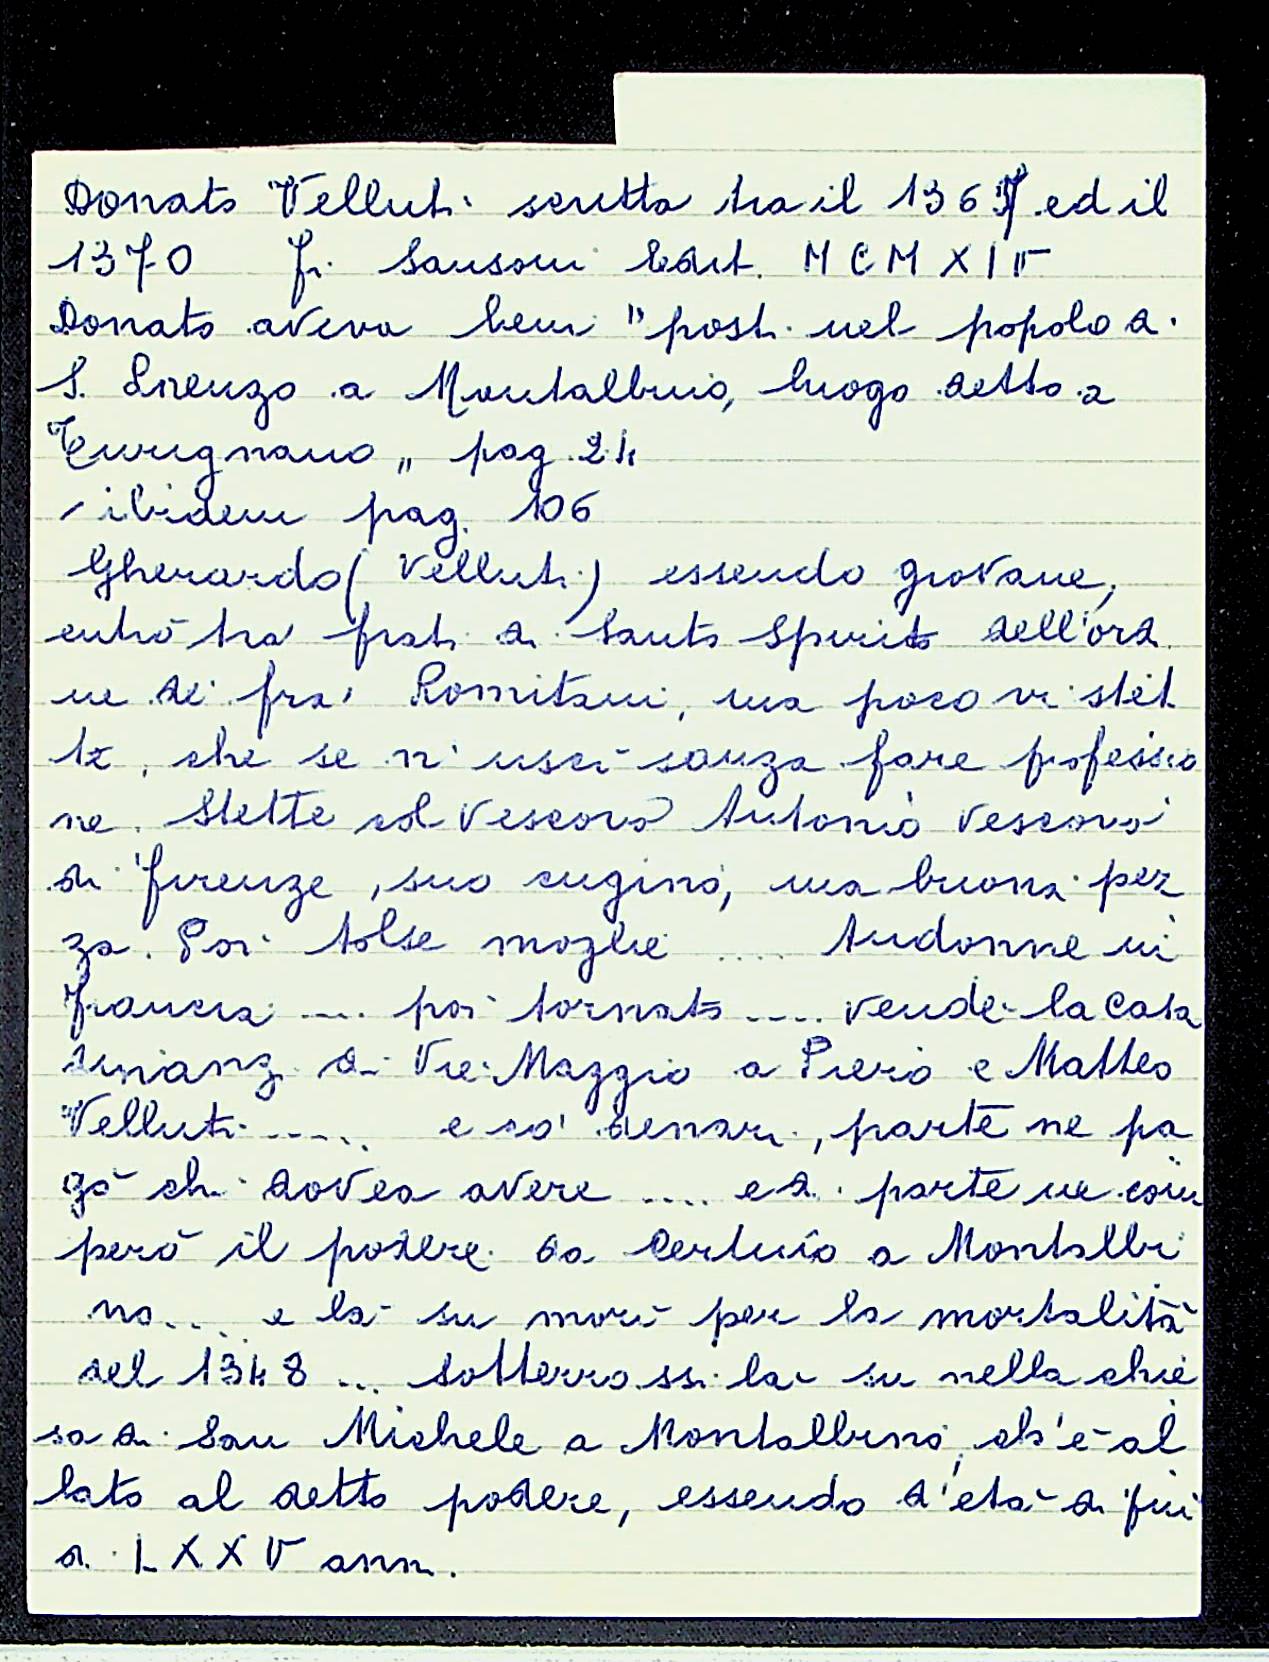 Donato Velluti scritta tra il 1367 ed il
1370 G. Sansoni Edit. MCMXIV
Donato aveva beni "posti nel popolo di
S. Lorenzo a Montalbino, luogo detto a
Turignano" pag. 24
/ ibidem pag. 106
Gherardo (Velluti) essendo giovane,
entrò tra' frati di Santo Spirito dell'ordi
ne de' fra' Romitani, ma poco vi stet
te, che se n'uscì sanza fare professio
ne. Stette col Vescovo Antonio Vescovo
di Firenze, suo cugino, una buona pez
za. Poi tolse moglie .... Andonne in
Francia .... poi tornato .... vendé la casa
dinanzi di Via Maggio a Piero e Matteo
Velluti ..... e co' denari, parte ne pa
gò chi dovea avere .... e di parte ne com
però il podere da Certuio a Montalbi
no.... e là su morì per la mortalità
del 1348 ... sotterrossi là su nella chie
sa di San Michele a Montalbino, ch'è al
lato al detto podere, essendo d'età di piu
di LXXV anni.